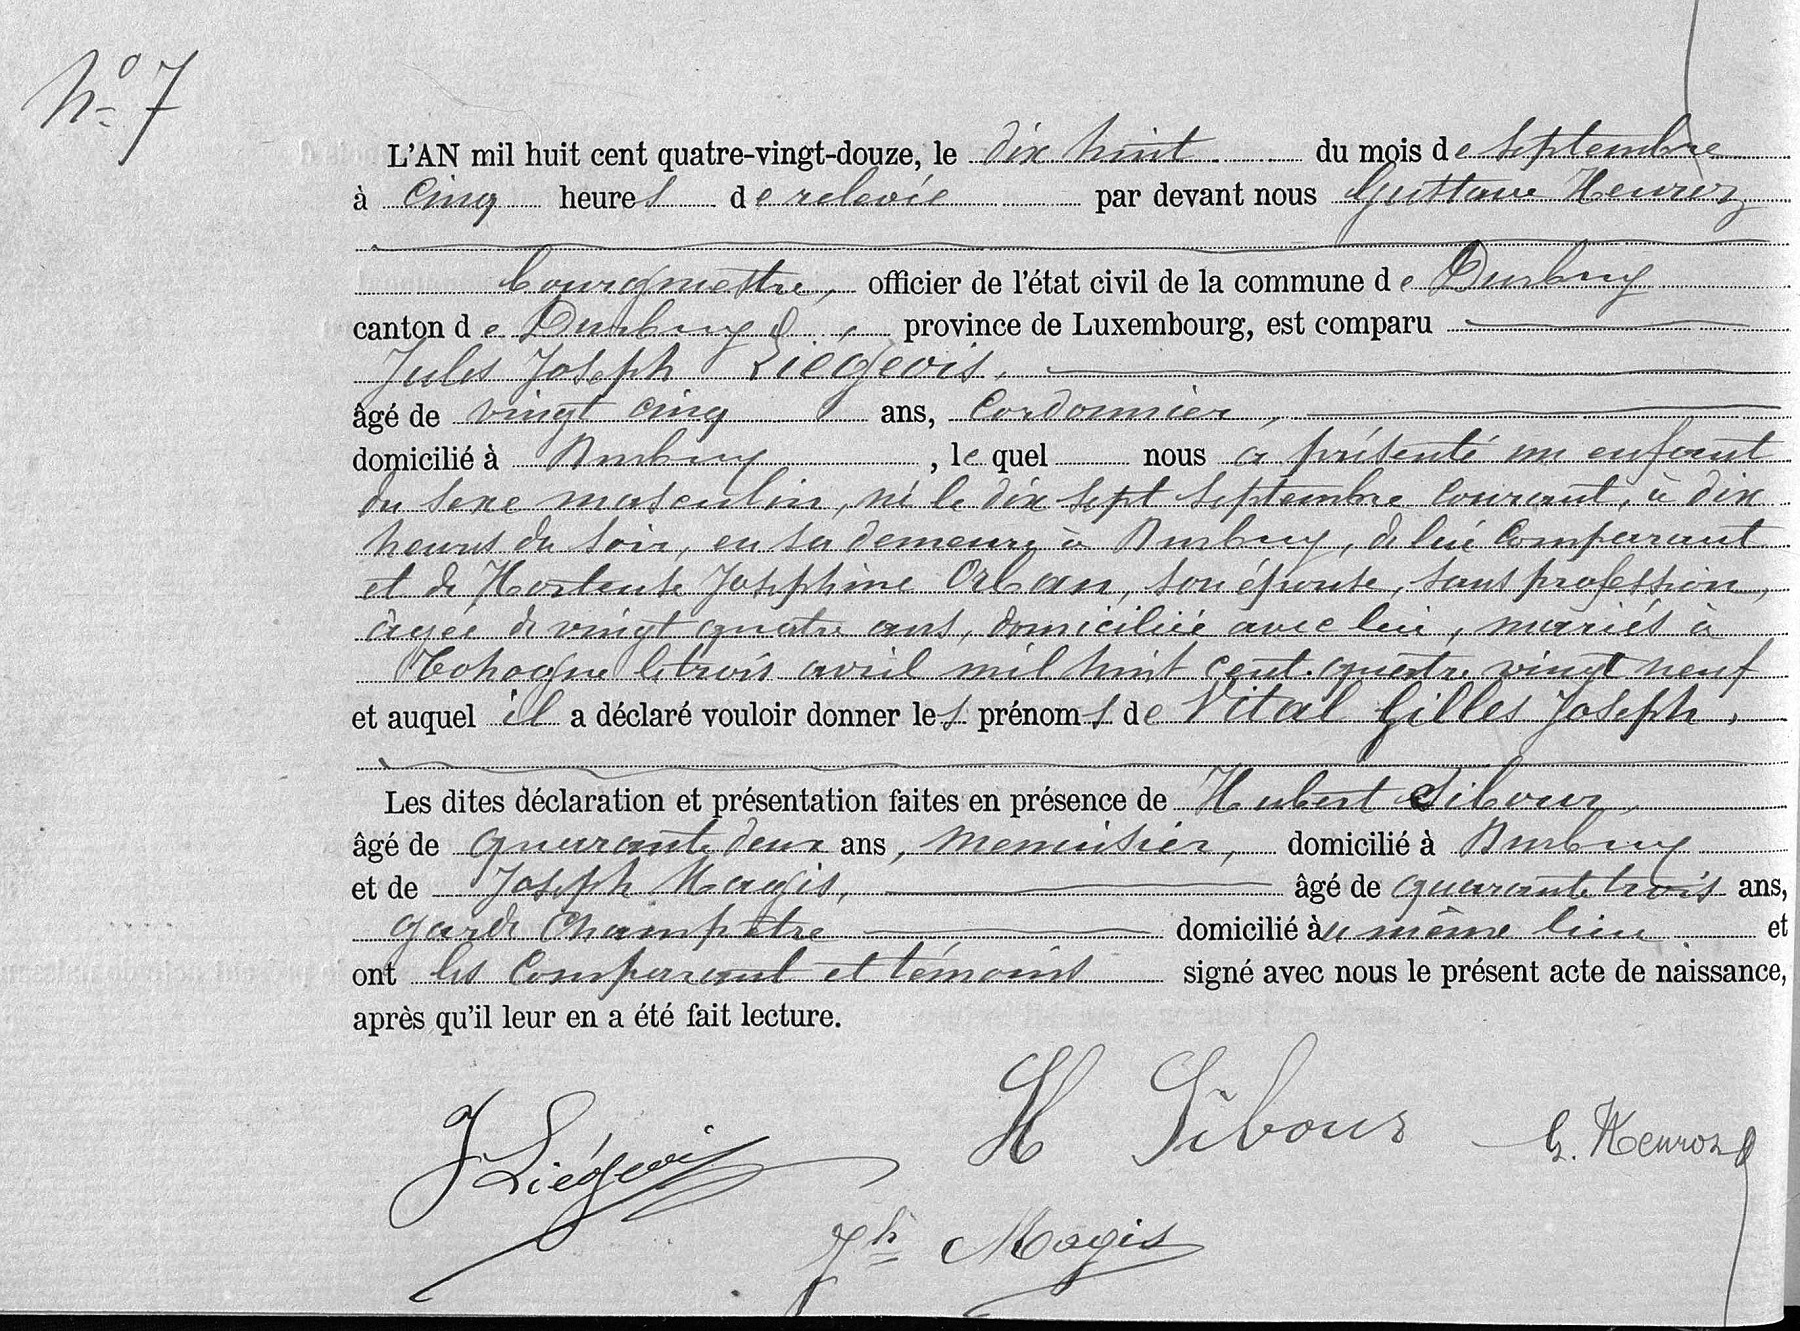 No 7
L'AN mil huit cent quatre-vingt-douze, le dix huit du mois de septembre
à cinq heures de relevée par devant nous Gustave Henroz
bourgmestre, officier de l'état civil de la commune de Durbuy
canton de Durbuy, province de Luxembourg, est comparu
Jules Joseph Liégeois,
âgé de vingt cinq ans, cordonnier,
domicilié à Durbuy, le quel nous a présenté un enfant
du sexe masculin, né le dix sept septembre courant, à dix
heures du soir, en sa demeure à Durbuy, de lui comparant
et de Hortense Joséphine Orban, son épouse, sans profession,
âgée de vingt quatre ans, domiciliée avec lui, mariés à
Tohogne le trois avril mil huit cent quatre vingt neuf
et auquel il a déclaré vouloir donner les prénoms de Vital Gilles Joseph,
Les dites déclaration et présentation faites en présence de Hubert Sibour,
âgé de quarante deux ans, menuisier, domicilié à Durbuy
et de Joseph Magis, âgé de quarante trois ans,
garde champêtre domicilié au même lieu et
ont les comparant et témoins signé avec nous le présent acte de naissance,
après qu'il leur en a été fait lecture.
J Liégeois H Sibour G. Henroz
Jph Magis